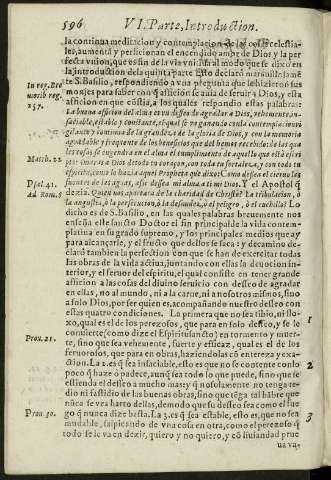 596 VI. Parte, Introduction.
la continua meditacion y contemplacion de las cosas celestia-
les, aumenta y perficionan el encendido amor de Dios y la per-
fecta vnion, que es fin de la via vnitiua al modo que se dixo en
la introduction de la quinta parte. Esto declarò marauillosamē
te S. Basilio, respondiendo a vna pregunta que le hizieron sus
monjes para saber con q̃ afficion se auia de seruir a Dios, y esta
afficion en que cōsistia, a los quales respondio estas palabras:
La buena afficion del alma es vn desseo de agradar a Dios, vehemente, in-
saciable, estable y constante, el qual se va ganando con la contemplacion vi
gilante y continua de la grandeza de la gloria de Dios, y con la memoria
agradable y frequente de los beneficios que del hemos recebido: de las qua
les cosas se engendra en el alma el cumplimiento de aquello que està escri
to: Amaràs a Dios de todo tu coraçon, con toda tu fortaleza, y con todo tu
espiritu, como lo hazia aquel Propheta que dixo: Como dessea el cieruo las
fuentes de las aguas, asse dessea mi alma a ti mi Dios. Y el Apostol q̃
dezia. Quien nos apartara de la charidad de Christo? La tribulacion, o
la angustia, o la persecucion, ò la desnudez, ò el peligro, o el cuchillo? Lo
dicho es de S. Basilio, en las quales palabras breuemente nos
enseña este sancto Doctor el fin principal de la vida contem-
platiua en su grado supremo, y los principales medios que ay
para alcançarle, y el fructo que dellos se saca: y de camino de-
clarò tambien la perfection con que se han de exercitar todas
las obras de la vida actiua, juntando con ellas la deuocion in-
terior, y el feruor del espiritu, el qual consiste en tener grande
afficion a las cosas del diuino seruicio con desseo de agradar
en ellas, no al mundo, ni a la carne, ni a nosotros mismos, sino
a solo Dios, por ser quien es, acompañando nuestro desseo con
estas quatro condiciones. La primera que no sea tibio, ni flo-
xo, qual es el de los perezosos, que para en solo desseo, y se le
conuierte (como dize el Espiritu sancto) en tormento y muer-
te, sino que sea vehemente, fuerte y efficaz, qual es el de los
feruorosos, que para en obras, haziendolas cō entereza y exa-
ction. La 2. es q̃ sea insaciable, esto es que no se contente con lo
poco q̃ haze ò padece, aunq̃ sea todo lo que puede, sino que se
estienda el desseo a mucho mas: y q̃ no solamente no tenga te-
dio ni fastidio de las buenas obras, sino que tēga tal hābre que
nūca se vea harto dellas, de modo que su desseo sea como el fue
go q̃ nunca dize basta. La 3. es q̃ sea estable, esto es, que no sea
mudable, saltando de vna cosa en otra, como el perezoso q̃
todo se le va en dezir, quiero y no quiero, y cō liuiandad prue
ua va-
In reg. Bre
uiorib. reg.
157.
Matth. 22
Psal. 41.
Ad Rom. 8
Prou. 21.
Prou. 30.
1
2
3